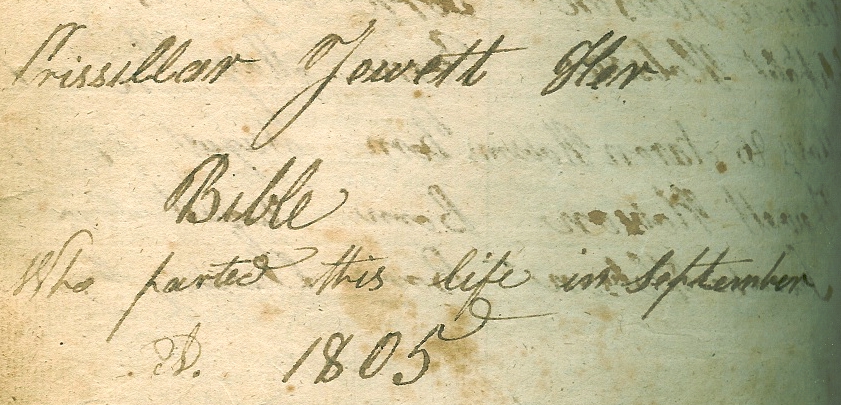 Prissillar Jowett Her
Bible
Who parted this life in September
AD. 1805